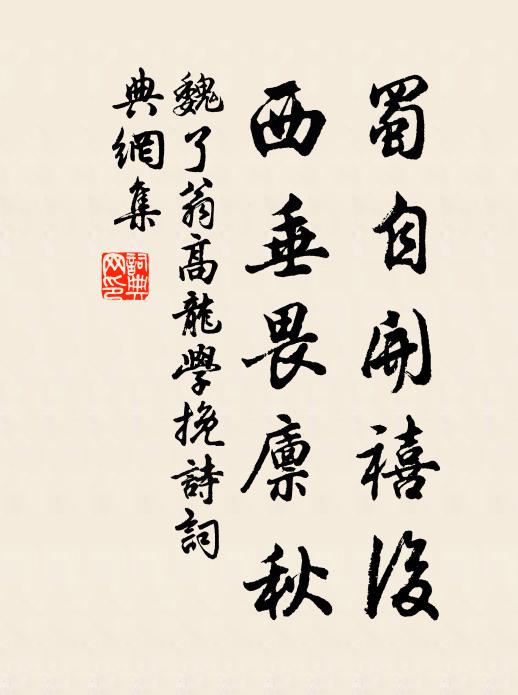 蜀自開禧後
西垂畏廩秋
魏了翁高龍學挽詩詞
典網集
詞典網印